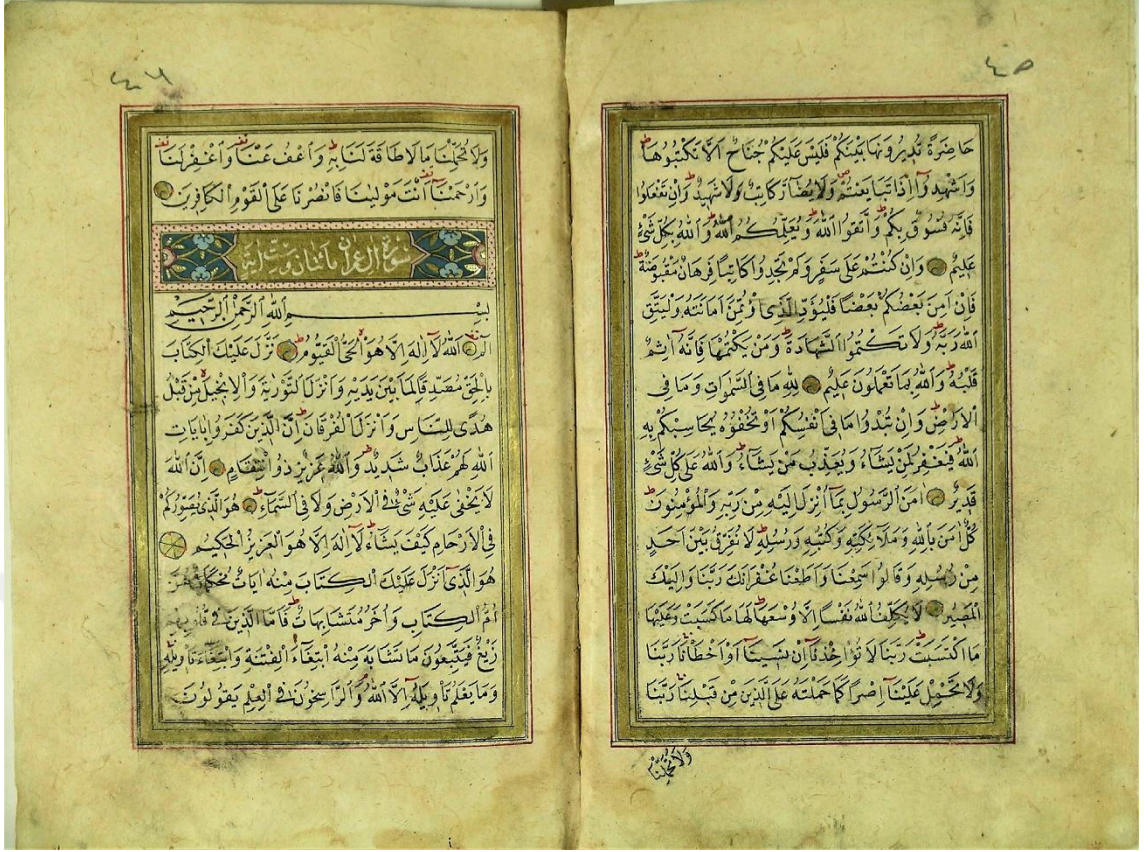 ٤٥
حَاضِرَةً تُدِيرُونَهَا بَيْنَكُمْ فَلَيْسَ عَلَيْكُمْ جُنَاحٌ اَلَّا تَكْتُبُوهَا
وَاَشْهِدُوٓا اِذَا تَبَايَعْتُمْ وَلَا يُضَآرَّ كَاتِبٌ وَلَا شَهِيدٌ وَاِنْ تَفْعَلُوا
فَاِنَّهُ فُسُوقٌ بِكُمْ وَاتَّقُوا اللّٰهَ وَيُعَلِّمُكُمُ اللّٰهُ وَاللّٰهُ بِكُلِّ شَيْءٍ
عَلِيمٌ وَاِنْ كُنْتُمْ عَلٰى سَفَرٍ وَلَمْ تَجِدُوا كَاتِبًا فَرِهَانٌ مَقْبُوضَةٌ
فَاِنْ اَمِنَ بَعْضُكُمْ بَعْضًا فَلْيُؤَدِّ الَّذِي اؤْتُمِنَ اَمَانَتَهُ وَلْيَتَّقِ
اللّٰهَ رَبَّهُ وَلَا تَكْتُمُوا الشَّهَادَةَ وَمَنْ يَكْتُمْهَا فَاِنَّهُ اٰثِمٌ
قَلْبُهُ وَاللّٰهُ بِمَا تَعْمَلُونَ عَلِيمٌ لِلّٰهِ مَا فِي السَّمٰوَاتِ وَمَا فِي
الْاَرْضِ وَاِنْ تُبْدُوا مَا فِي اَنْفُسِكُمْ اَوْ تُخْفُوهُ يُحَاسِبْكُمْ بِهِ
اللّٰهُ فَيَغْفِرُ لِمَنْ يَشَآءُ وَيُعَذِّبُ مَنْ يَشَآءُ وَاللّٰهُ عَلٰى كُلِّ شَيْءٍ
قَدِيرٌ اٰمَنَ الرَّسُولُ بِمَآ اُنْزِلَ اِلَيْهِ مِنْ رَبِّهِ وَالْمُؤْمِنُونَ
كُلٌّ اٰمَنَ بِاللّٰهِ وَمَلٰٓائِكَتِهِ وَكُتُبِهِ وَرُسُلِهِ لَا نُفَرِّقُ بَيْنَ اَحَدٍ
مِنْ رُسُلِهِ وَقَالُوا سَمِعْنَا وَاَطَعْنَا غُفْرَانَكَ رَبَّنَا وَاِلَيْكَ
الْمَصِيرُ لَا يُكَلِّفُ اللّٰهُ نَفْسًا اِلَّا وُسْعَهَا لَهَا مَا كَسَبَتْ وَعَلَيْهَا
مَا اكْتَسَبَتْ رَبَّنَا لَا تُؤَاخِذْنَآ اِنْ نَسِينَآ اَوْ اَخْطَاْنَا رَبَّنَا
وَلَا تَحْمِلْ عَلَيْنَآ اِصْرًا كَمَا حَمَلْتَهُ عَلَى الَّذِينَ مِنْ قَبْلِنَا رَبَّنَا
وَلَا تُحَمِّلْنَا
٤٦
وَلَا تُحَمِّلْنَا مَا لَا طَاقَةَ لَنَا بِهِ وَاعْفُ عَنَّا وَاغْفِرْ لَنَا
وَارْحَمْنَآ اَنْتَ مَوْلٰينَا فَانْصُرْنَا عَلَى الْقَوْمِ الْكَافِرِينَ
سورة آل عمران مائتان وست آية
بِسْمِ اللّٰهِ الرَّحْمٰنِ الرَّحِيمِ
الٓمٓ اَللّٰهُ لَآ اِلٰهَ اِلَّا هُوَ الْحَيُّ الْقَيُّومُ نَزَّلَ عَلَيْكَ الْكِتَابَ
بِالْحَقِّ مُصَدِّقًا لِمَا بَيْنَ يَدَيْهِ وَاَنْزَلَ التَّوْرٰيةَ وَالْاِنْجِيلَ مِنْ قَبْلُ
هُدًى لِلنَّاسِ وَاَنْزَلَ الْفُرْقَانَ اِنَّ الَّذِينَ كَفَرُوا بِاٰيَاتِ
اللّٰهِ لَهُمْ عَذَابٌ شَدِيدٌ وَاللّٰهُ عَزِيزٌ ذُو انْتِقَامٍ اِنَّ اللّٰهَ
لَا يَخْفٰى عَلَيْهِ شَيْءٌ فِي الْاَرْضِ وَلَا فِي السَّمَآءِ هُوَ الَّذِي يُصَوِّرُكُمْ
فِي الْاَرْحَامِ كَيْفَ يَشَآءُ لَآ اِلٰهَ اِلَّا هُوَ الْعَزِيزُ الْحَكِيمُ
هُوَ الَّذِيٓ اَنْزَلَ عَلَيْكَ الْكِتَابَ مِنْهُ اٰيَاتٌ مُحْكَمَاتٌ هُنَّ
اُمُّ الْكِتَابِ وَاُخَرُ مُتَشَابِهَاتٌ فَاَمَّا الَّذِينَ فِي قُلُوبِهِمْ
زَيْغٌ فَيَتَّبِعُونَ مَا تَشَابَهَ مِنْهُ ابْتِغَآءَ الْفِتْنَةِ وَابْتِغَآءَ تَاْوِيلِهِ
وَمَا يَعْلَمُ تَاْوِيلَهُٓ اِلَّا اللّٰهُ وَالرَّاسِخُونَ فِي الْعِلْمِ يَقُولُونَ